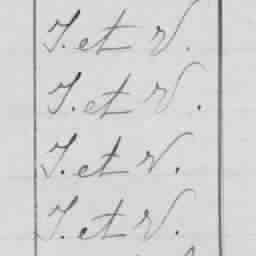 T. et V.
T. et V.
T. et V.
T. et V.